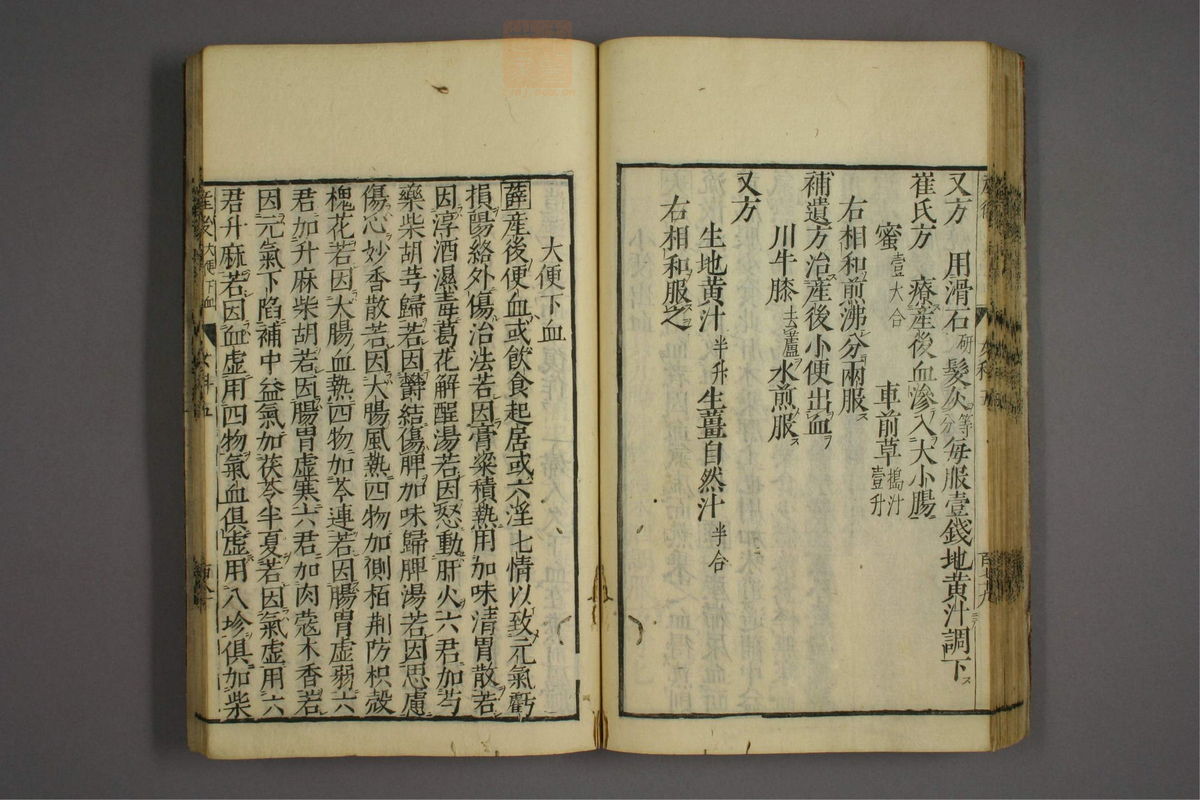 又方 用滑石研髮灰等分每服壹錢地黃汁調下
崔氏方 療產後血滲入大小腸
蜜壹大合 車前草搗汁壹升
右相和煎沸分兩服
補遺方治產後小便出血
川牛膝去蘆水煎服
又方
生地黃汁半升生薑自然汁半合
右相和服之
大便下血
薛產後便血或飲食起居或六淫七情以致元氣虧
損陽絡外傷治法若因膏粱積熱用加味清胃散若
因淳酒濕毒葛花解酲湯若因怒動肝火六君加芍
藥柴胡芎歸若因鬱結傷脾加味歸脾湯若因思慮
傷心妙香散若因大腸風熱四物加側栢荆防枳殼
槐花若因大腸血熱四物加芩連若因腸胃虛弱六
君加升麻柴胡若因腸胃虛寒六君加肉蔻木香若
因元氣下陷補中益氣加茯苓半夏若因氣虛用六
君升麻若因血虛用四物氣血俱虛用八珍俱加柴
產後 大便下血 女科五